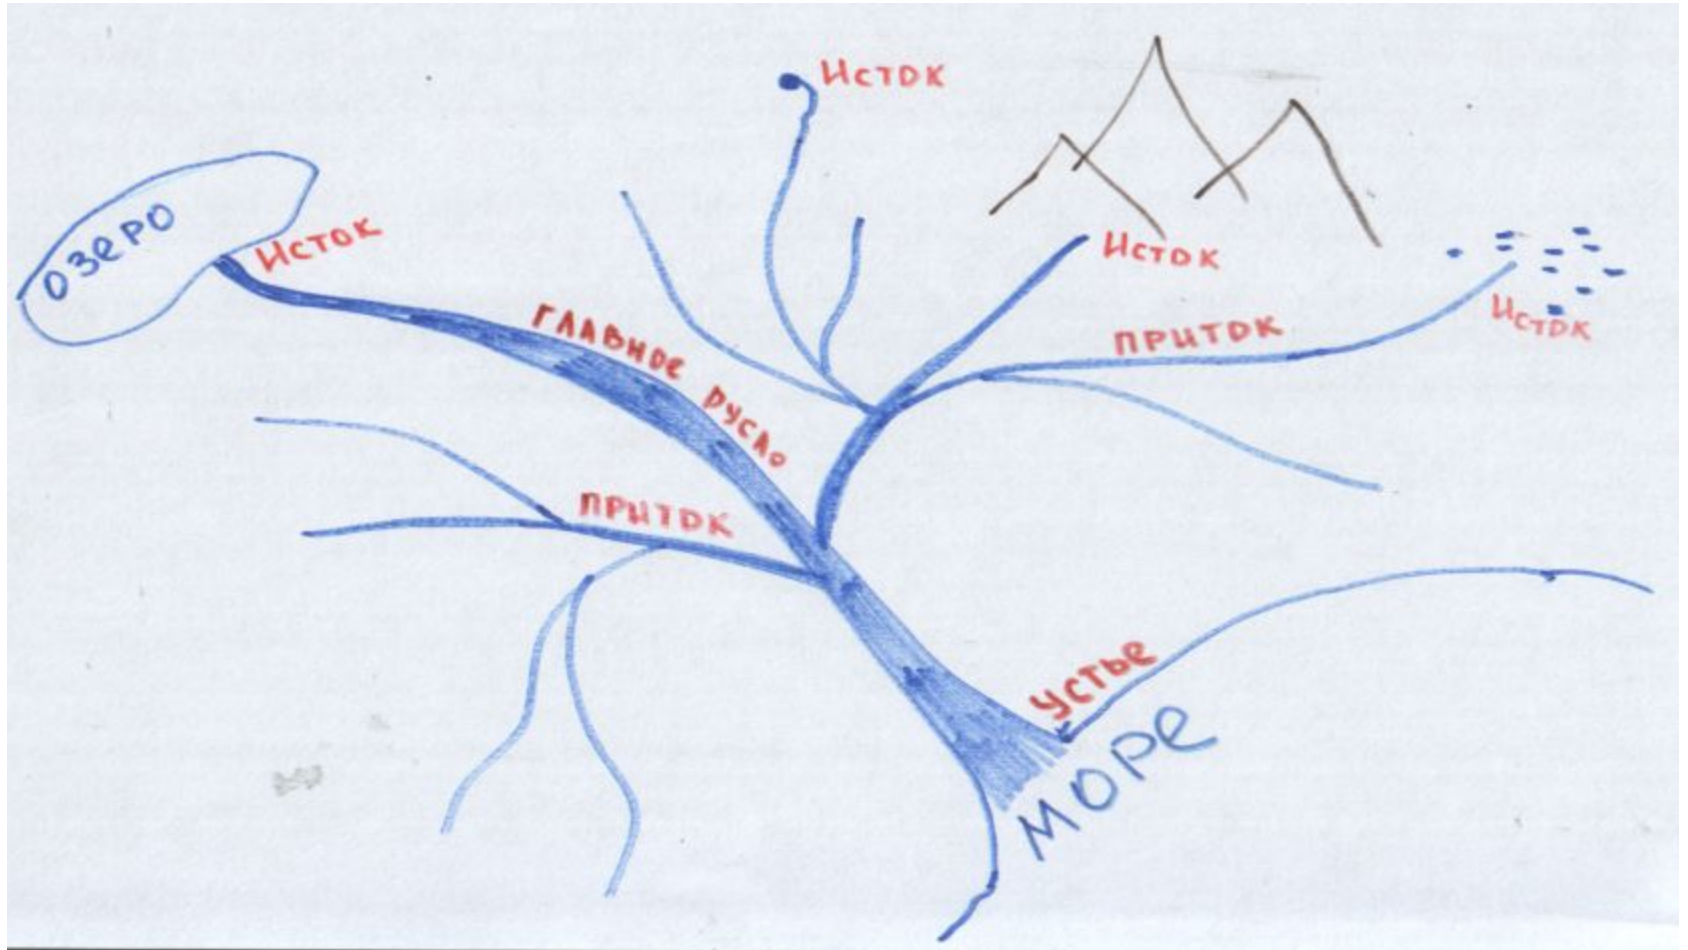 Исток
ОЗЕРО
Исток
Исток
Исток
ГЛАВНОЕ РУСЛО
ПРИТОК
ПРИТОК
УСТЬЕ
МОРЕ